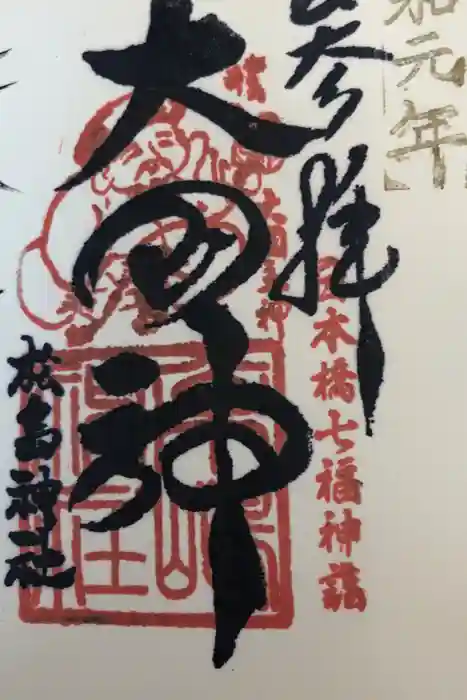 和元年
参拝
日本橋七福神詣
大国神
松島神社